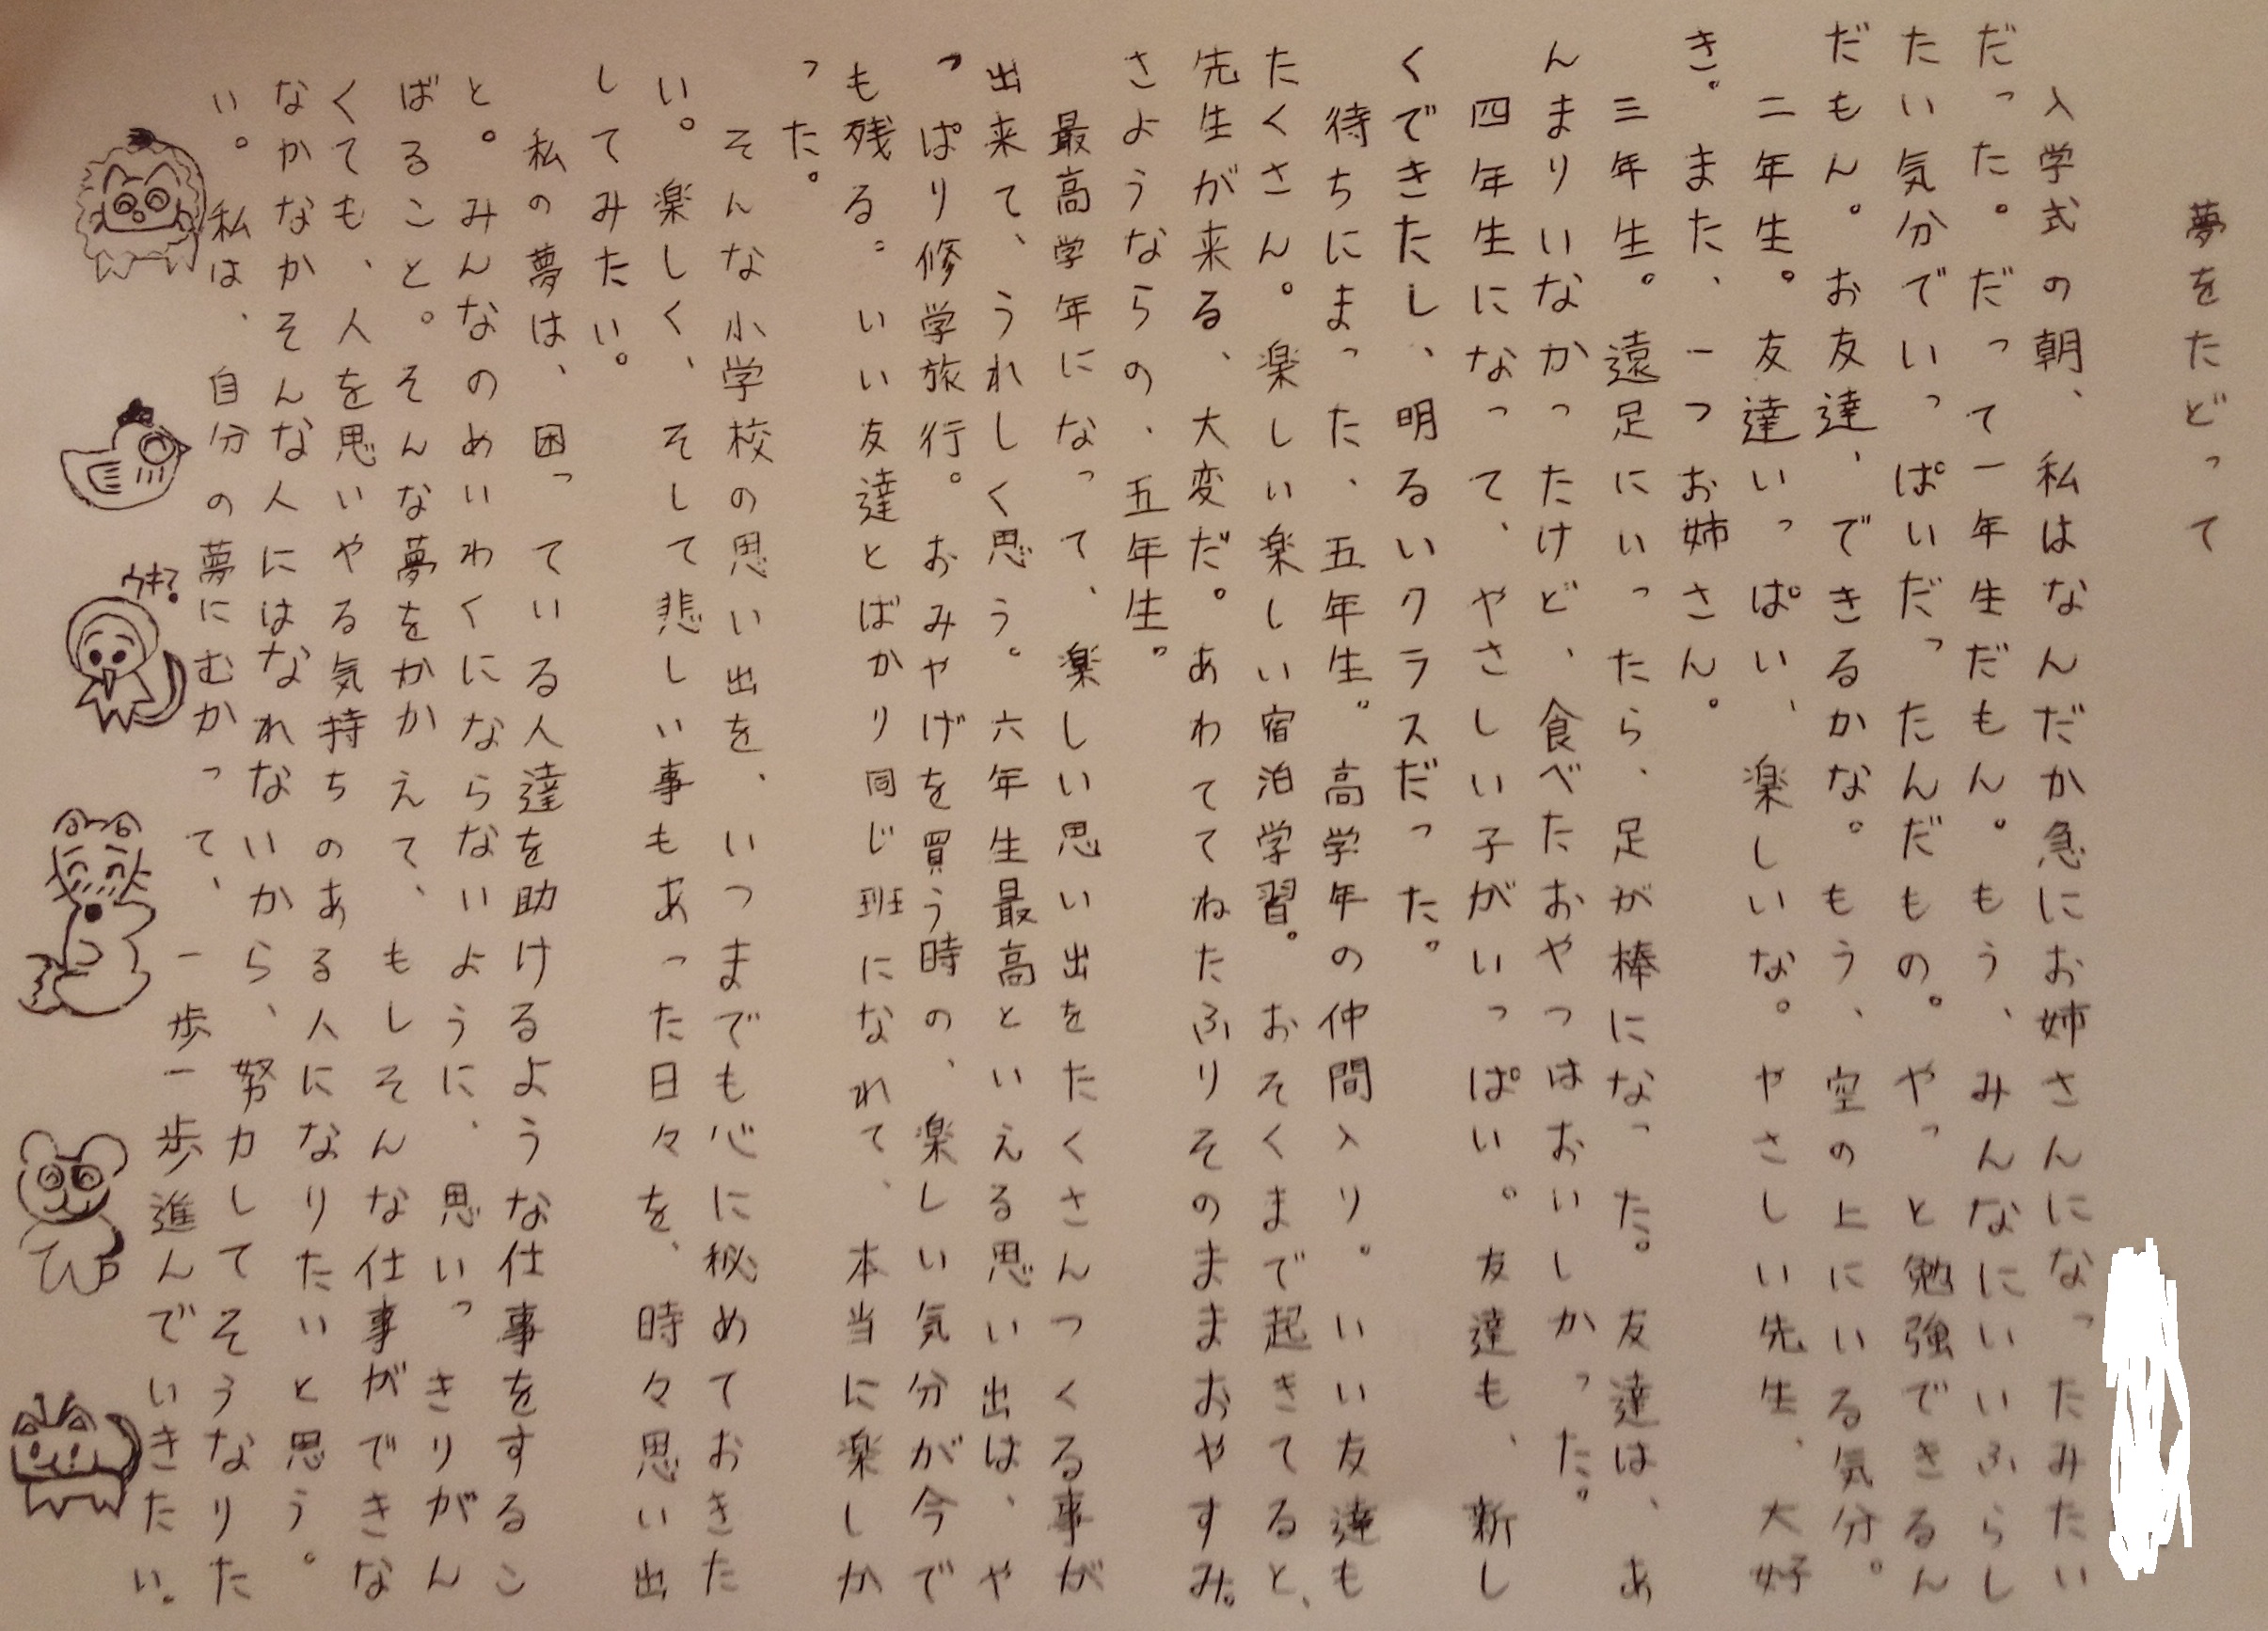 夢をたどって
入学式の朝、私はなんだか急にお姉さんになったみたい
だった。だって一年生だもん。もう、みんなにいいふらし
たい気分でいっぱいだったんだもの。やっと勉強できるん
だもん。お友達、できるかな。もう、空の上にいる気分。
二年生。友達いっぱい、楽しいな。やさしい先生、大好
き。また、一つお姉さん。
三年生。遠足にいったら、足が棒になった。友達は、あ
んまりいなかったけど、食べたおやつはおいしかった。
四年生になって、やさしい子がいっぱい。友達も、新し
くできたし、明るいクラスだった。
待ちにまった、五年生。高学年の仲間入り。いい友達も
たくさん。楽しい楽しい宿泊学習。おそくまで起きてると、
先生が来る、大変だ。あわててねたふりそのままおやすみ。
さようならの、五年生。
最高学年になって、楽しい思い出をたくさんつくる事が
出来て、うれしく思う。六年生最高といえる思い出は、や
っぱり修学旅行。おみやげを買う時の、楽しい気分が今で
も残る。いい友達とばかり同じ班になれて、本当に楽しか
った。
そんな小学校の思い出を、いつまでも心に秘めておきた
い。楽しく、そして悲しい事もあった日々を、時々思い出
してみたい。
私の夢は、困っている人達を助けるような仕事をするこ
と。みんなのめいわくにならないように、思いっきりがん
ばること。そんな夢をかかえて、もしそんな仕事ができな
くても、人を思いやる気持ちのある人になりたいと思う。
なかなかそんな人にはなれないから、努力してそうなりた
い。私は、自分の夢にむかって、一歩一歩進んでいきたい。
ウキ?